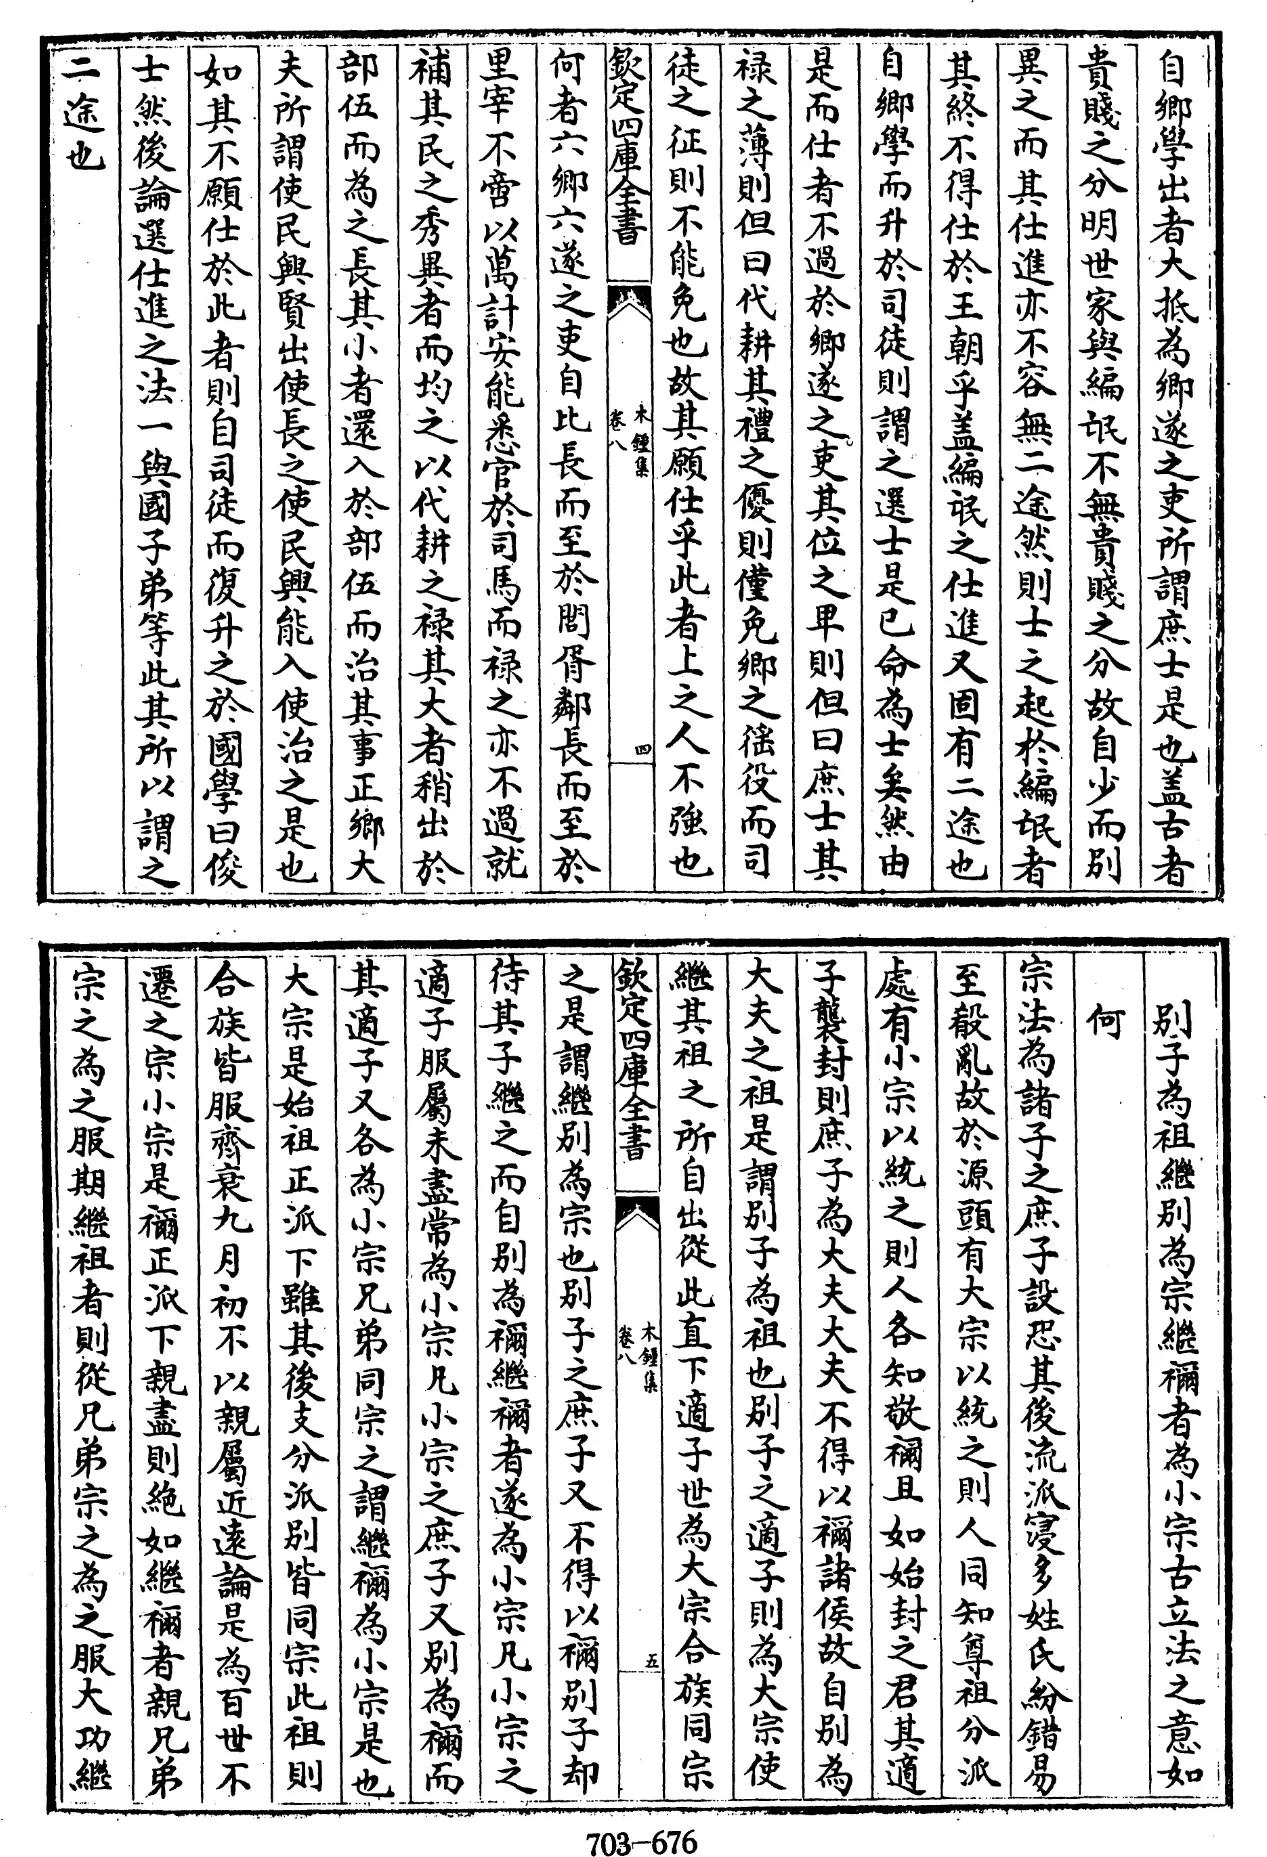 自鄉學出者大抵為鄉遂之吏所謂庶士是也盖古者
貴賤之分明世家與編氓不無貴賤之分故自少而別
異之而其仕進亦不容無二途然則士之起於編氓者
其終不得仕於王朝乎盖編氓之仕進又固有二途也
自鄉學而升於司徒則謂之選士是已命為士矣然由
是而仕者不過於鄉遂之吏其位之卑則但曰庶士其
祿之薄則但曰代耕其禮之優則僅免鄉之徭役而司
徒之征則不能免也故其願仕乎此者上之人不強也
欽定四庫全書
木鍾集
卷八
四
何者六鄉六遂之吏自比長而至於閭胥鄰長而至於
里宰不啻以萬計安能悉官於司馬而祿之亦不過就
補其民之秀異者而均之以代耕之祿其大者稍出於
部伍而為之長其小者還入於部伍而治其事正鄉大
夫所謂使民興賢出使長之使民興能入使治之是也
如其不願仕於此者則自司徒而復升之於國學曰俊
士然後論選仕進之法一與國子弟等此其所以謂之
二途也
別子為祖繼別為宗繼禰者為小宗古立法之意如
何
宗法為諸子之庶子設恐其後流派寖多姓氏紛錯易
至殽亂故於源頭有大宗以統之則人同知尊祖分派
處有小宗以統之則人各知敬禰且如始封之君其適
子襲封則庶子為大夫大夫不得以禰諸侯故自別為
大夫之祖是謂別子為祖也別子之適子則為大宗使
繼其祖之所自出從此直下適子世為大宗合族同宗
欽定四庫全書
木鍾集
卷八
五
之是謂繼別為宗也別子之庶子又不得以禰別子却
待其子繼之而自別為禰繼禰者遂為小宗凡小宗之
適子服屬未盡常為小宗凡小宗之庶子又別為禰而
其適子又各為小宗兄弟同宗之謂繼禰為小宗是也
大宗是始祖正派下雖其後支分派別皆同宗此祖則
合族皆服齊衰九月初不以親屬近遠論是為百世不
遷之宗小宗是禰正派下親盡則絶如繼禰者親兄弟
宗之為之服期繼祖者則從兄弟宗之為之服大功繼
703-676